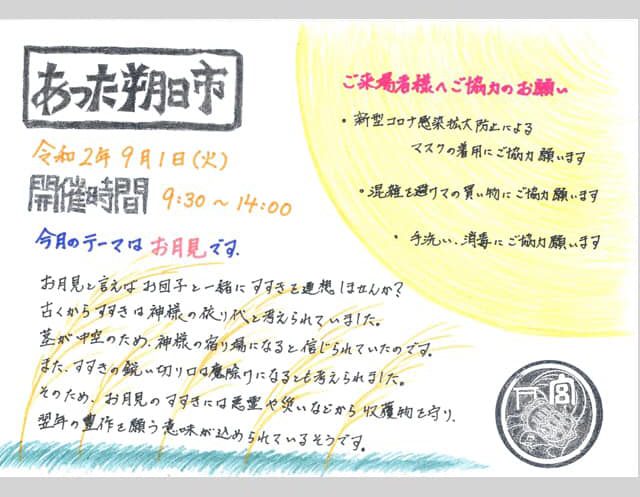 あった朔日市
令和2年9月1日(火)
開催時間 9:30~14:00
今月のテーマは お月見です.
お月見と言えばお団子と一緒にすすきを連想しませんか?
古くからすすきは神様の依り代と考えられていました。
茎が中空のため、神様の宿り場になると信じられていたのです。
また、すすきの鋭い切り口は魔除けになるとも考えられました。
そのため、お月見のすすきには悪霊や災いなどから収穫物を守り、
翌年の豊作を願う意味が込められているそうです。
ご来場者様へご協力のお願い
・新型コロナ感染拡大防止による
マスクの着用にご協力願います
・混雑を避けての買い物にご協力願います
・手洗い、消毒にご協力願います
宮